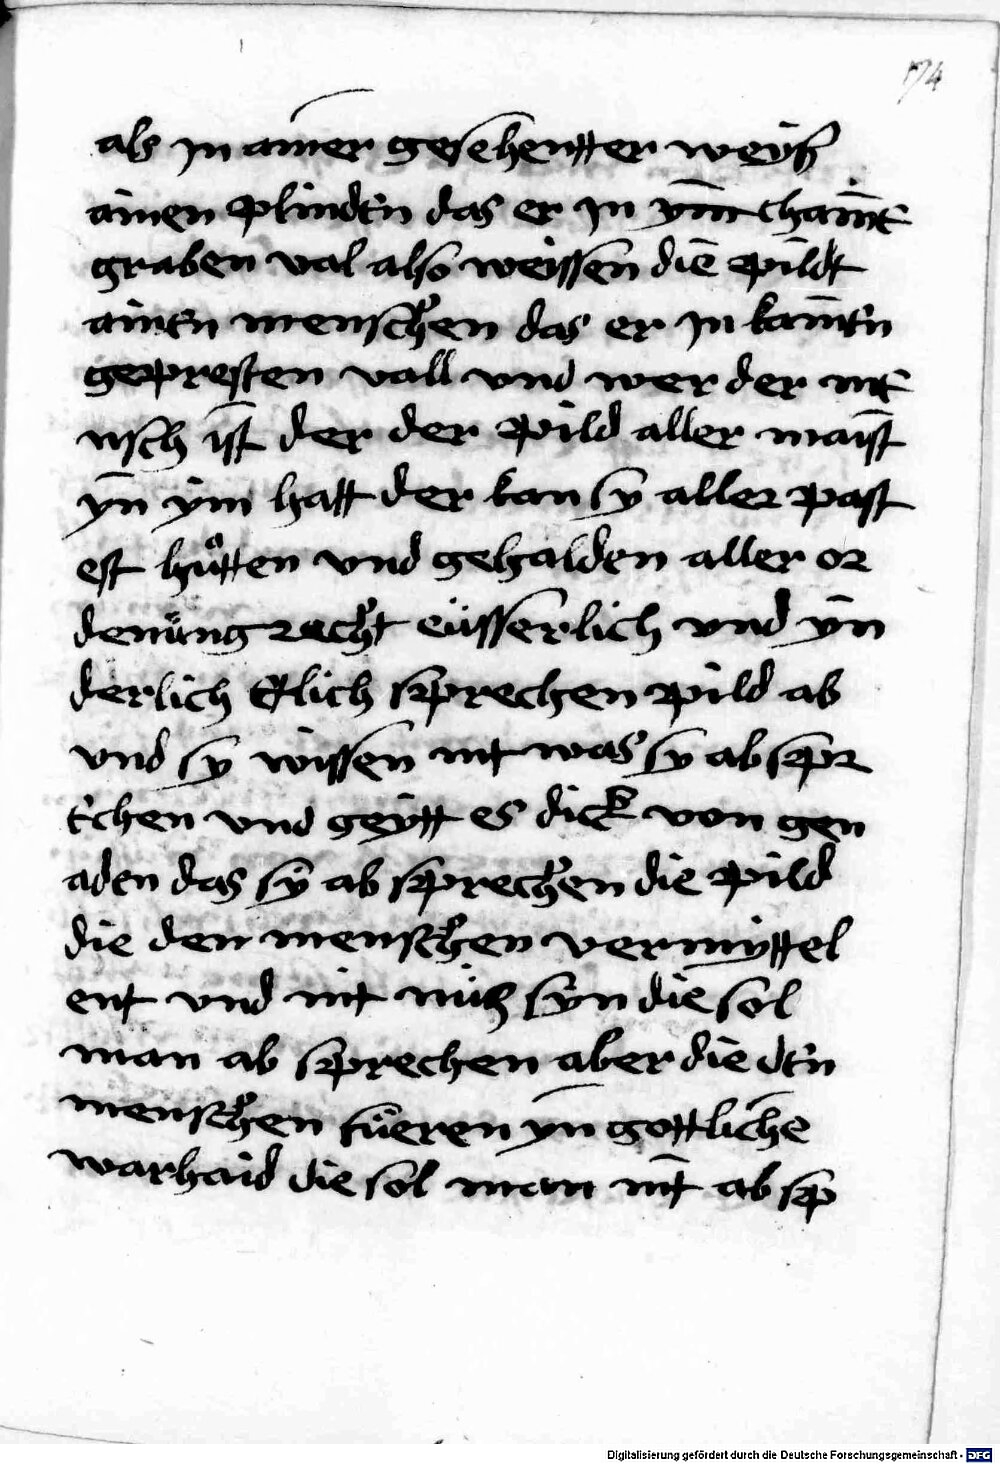 174
als jn ainer gesehentter weyß
ainen plinden das er jn ym chainē
graben val also weissen die pildt
ainen menschen das er jn kainen
gepresten vall vnd wer der me
nsch ist der der pild aller maist
yn ym hatt der kan sy aller past
est hütten vnd gehalden aller or
denüng recht eüsserlich vnd yn
derlich Etlich sprechen pild ab
vnd sy wissen nit was sy ab spr
echen vnd geytt es dick von gen
aden das sy ab sprechen die pild
die den menschen vermyttel
ent vnd nit nücz syn die sol
man ab sprechen aber die den
menschen füeren yn gottliche
warhaid die sol man nit ab sp
Digitalisierung gefördert durch die Deutsche Forschungsgemeinschaft - DFG